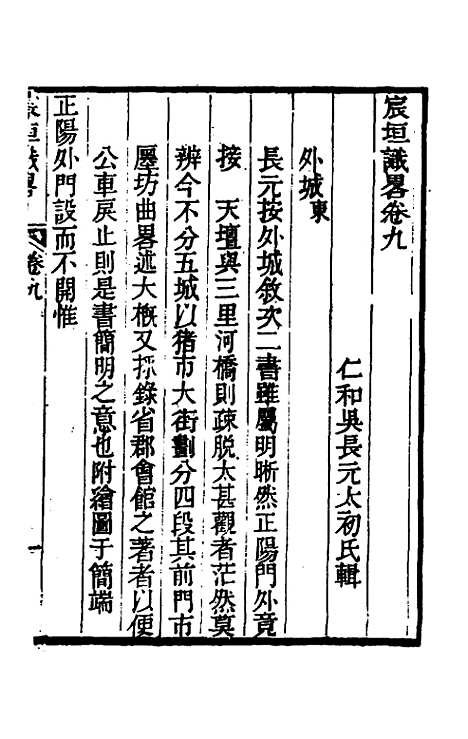 宸垣識畧卷九
仁和吳長元太初氏輯
外城東
長元按外城敘次二書雖屬明晰然正陽門外竟
接　天壇與三里河橋則疎脱太甚觀者茫然莫
辨今不分五城以猪市大街劃分四段其前門市
廛坊曲畧述大槪又採錄省郡會館之著者以便
公車戾止則是書簡明之意也附繪圖于簡端
正陽外門設而不開惟
宸垣識畧
卷九
一